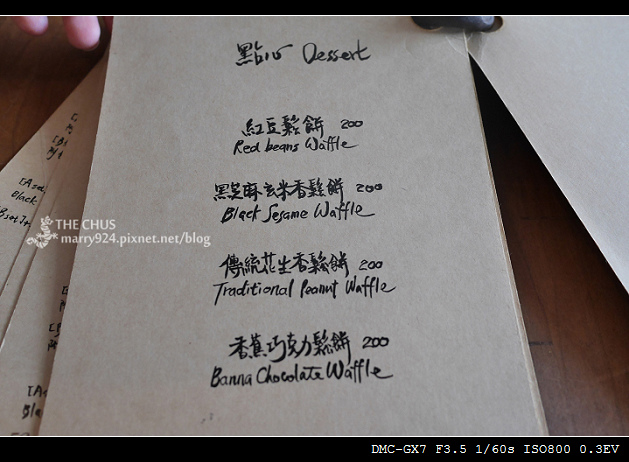 點心 Dessert
紅豆鬆餅 200
Red beans Waffle
黑芝麻玄米香鬆餅 200
Black Sesame Waffle
傳統花生香鬆餅 200
Traditional Peanut Waffle
香蕉巧克力鬆餅 200
Banna Chocolate Waffle
THE CHUS
marry924.pixnet.net/blog
DMC-GX7 F3.5 1/60s ISO800 0.3EV